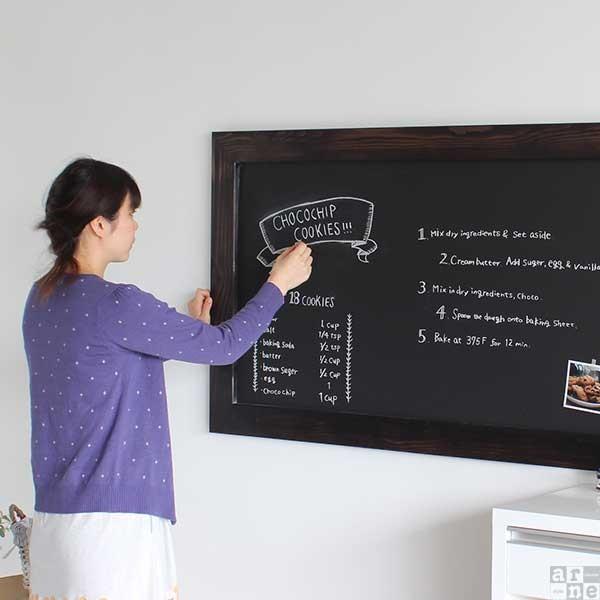 CHOCOCHIP
COOKIES!!!
18 COOKIES
1 cup
1/4 tsp
· baking soda 1/2 tsp
· barter 1/2 cup
· brown suger 1/2 cup
· egg 1
· chocochip 1 cup
1. Mix dry ingredients & set aside.
2. Cream butter. Add suger, egg, & Vanilla
3. Mix in dry ingredients, choco.
4. Spoon the dough onto baking sheet.
5. Bake at 375F for 12 min.
ar
ne